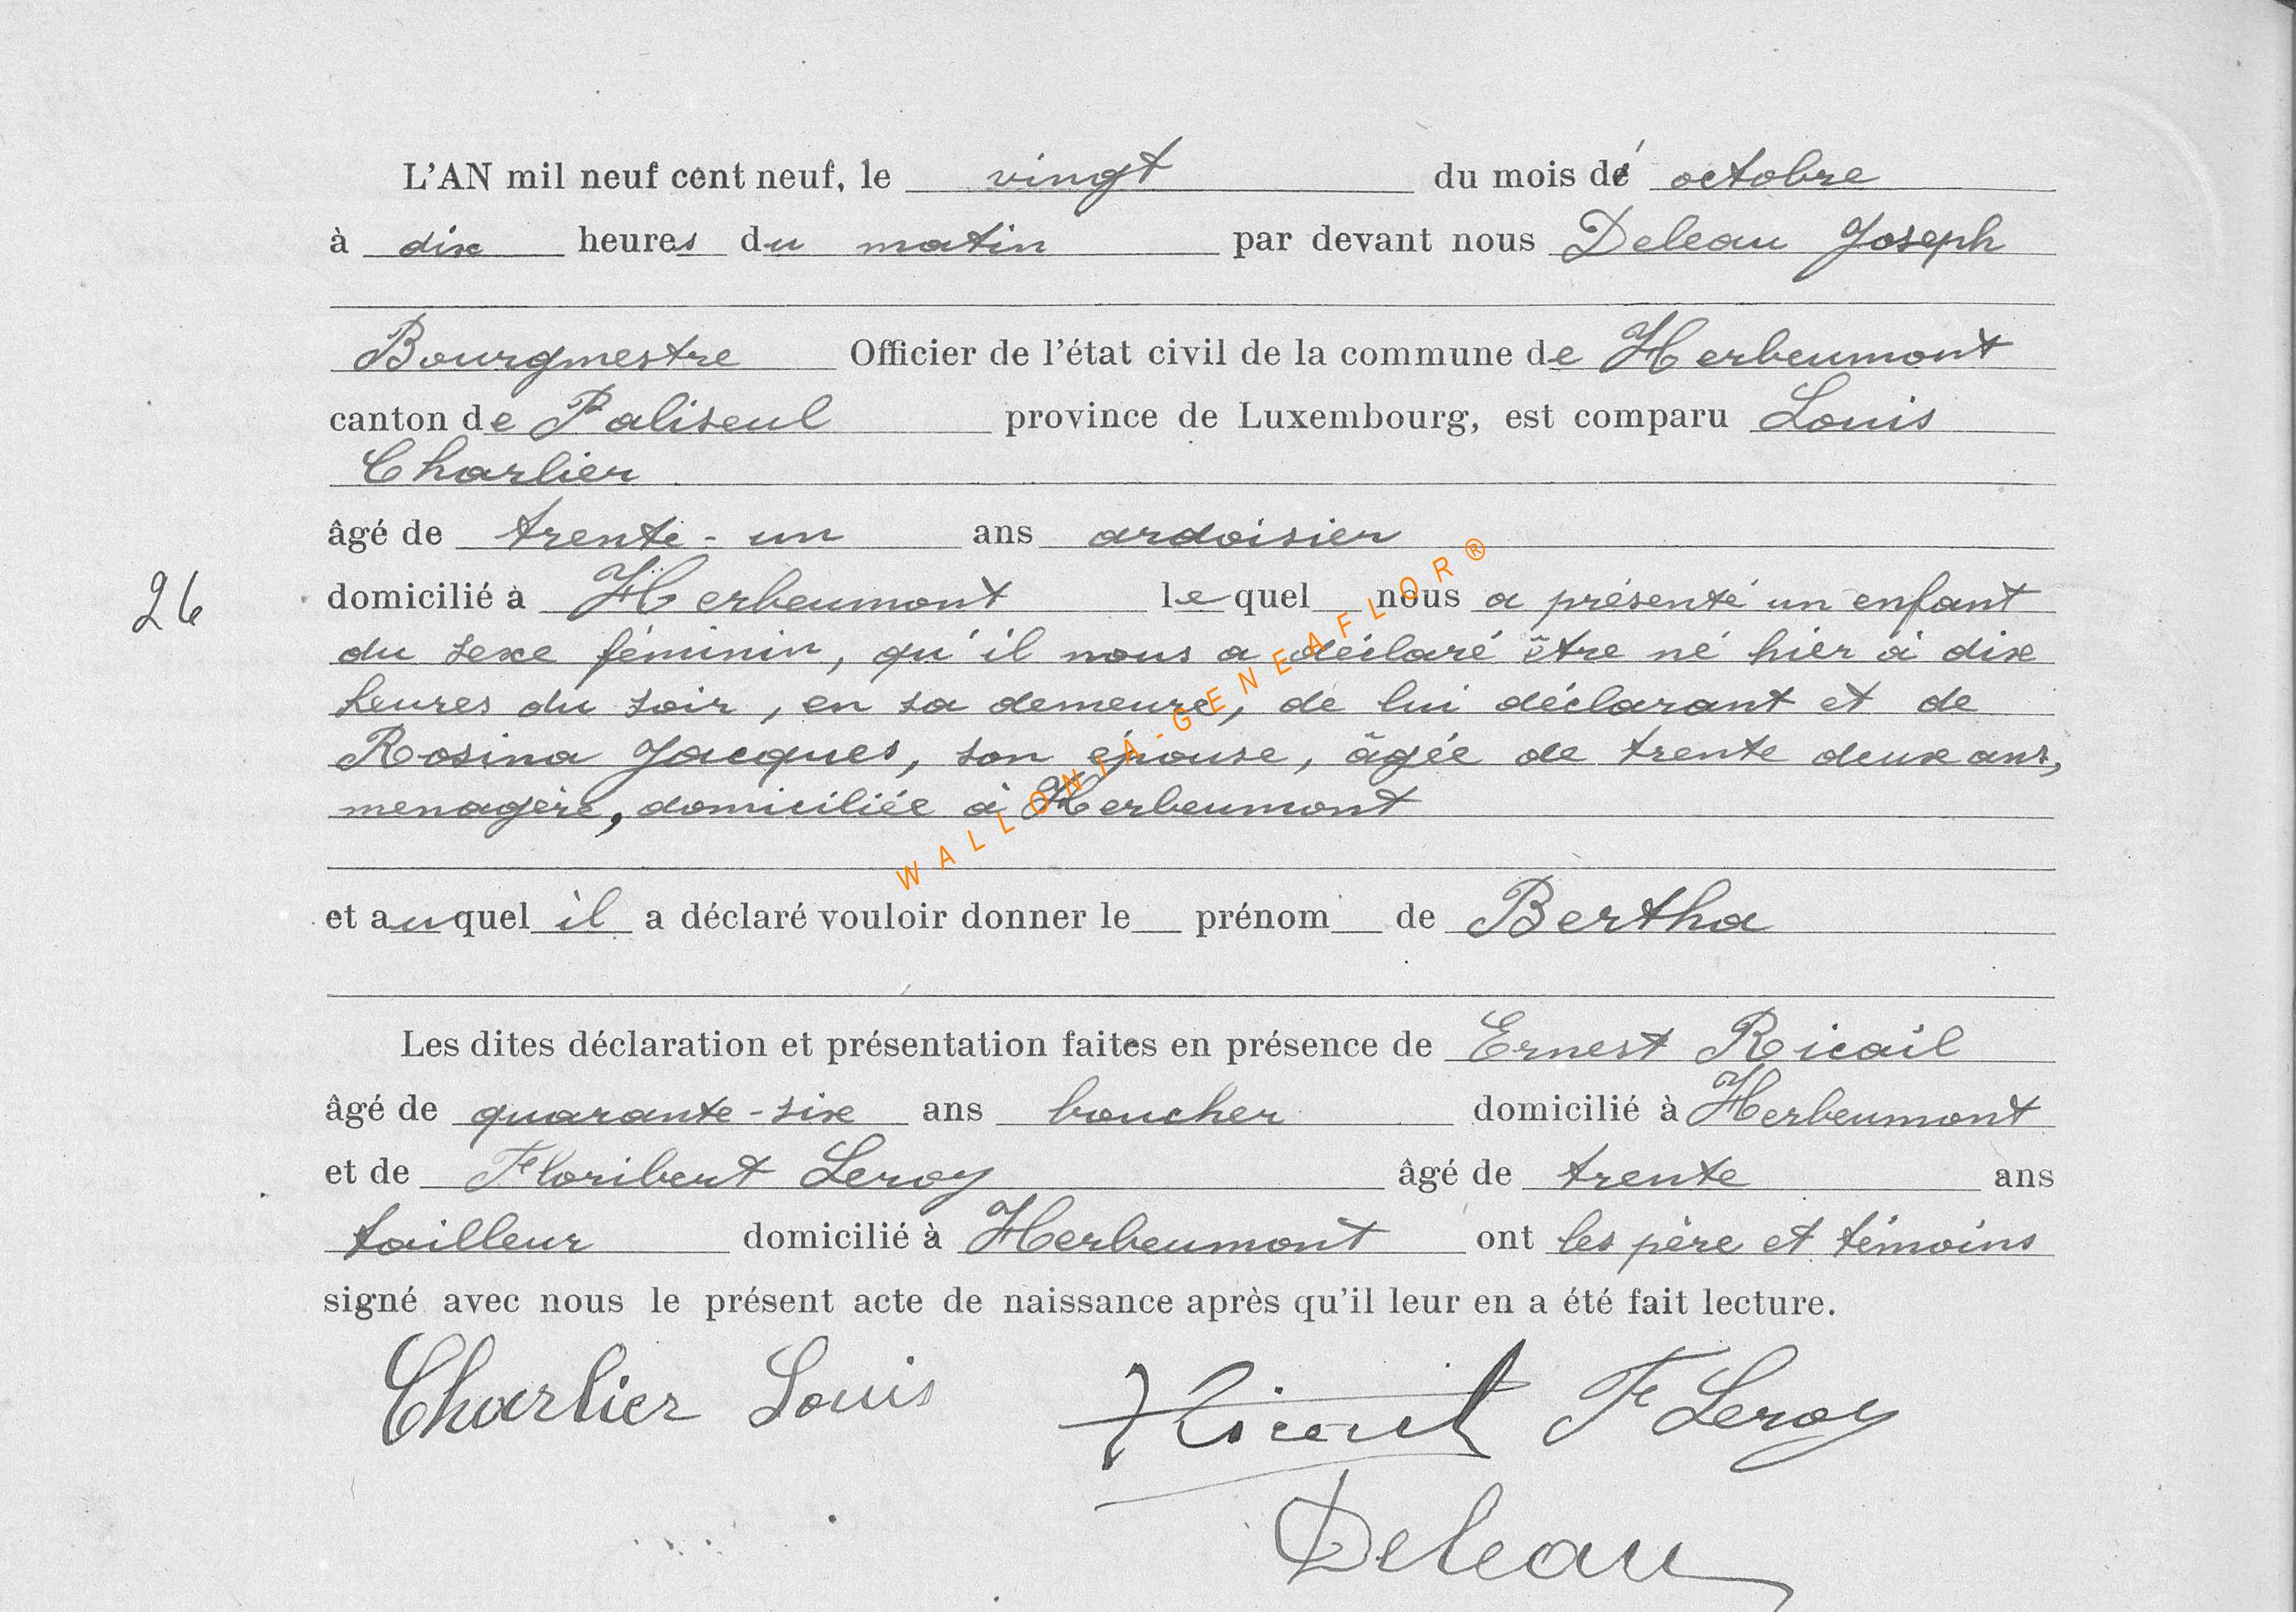 L'AN mil neuf cent neuf, le vingt du mois dé octobre
à dix heures du matin par devant nous Deleau Joseph
Bourgmestre Officier de l'état civil de la commune de Herbeumont
canton de Paliseul province de Luxembourg, est comparu Louis
Charlier
âgé de trente-un ans ardoisier
26
domicilié à Herbeumont lequel nous a présenté un enfant
du sexe féminin, qu'il nous a déclaré être né hier à dix
heures du soir, en sa demeure, de lui déclarant et de
Rosina Jacques, son épouse, âgée de trente deux ans,
menagère, domiciliée à Herbeumont
WALLONIA-GENEAFLOR®
et auquel il a déclaré vouloir donner le prénom de Bertha
Les dites déclaration et présentation faites en présence de Ernest Ricail
âgé de quarante-six ans boucher domicilié à Herbeumont
et de Floribert Leroy âgé de trente ans
tailleur domicilié à Herbeumont ont les père et témoins
signé avec nous le présent acte de naissance après qu'il leur en a été fait lecture.
Charlier Louis Ricail F Leroy
Deleau